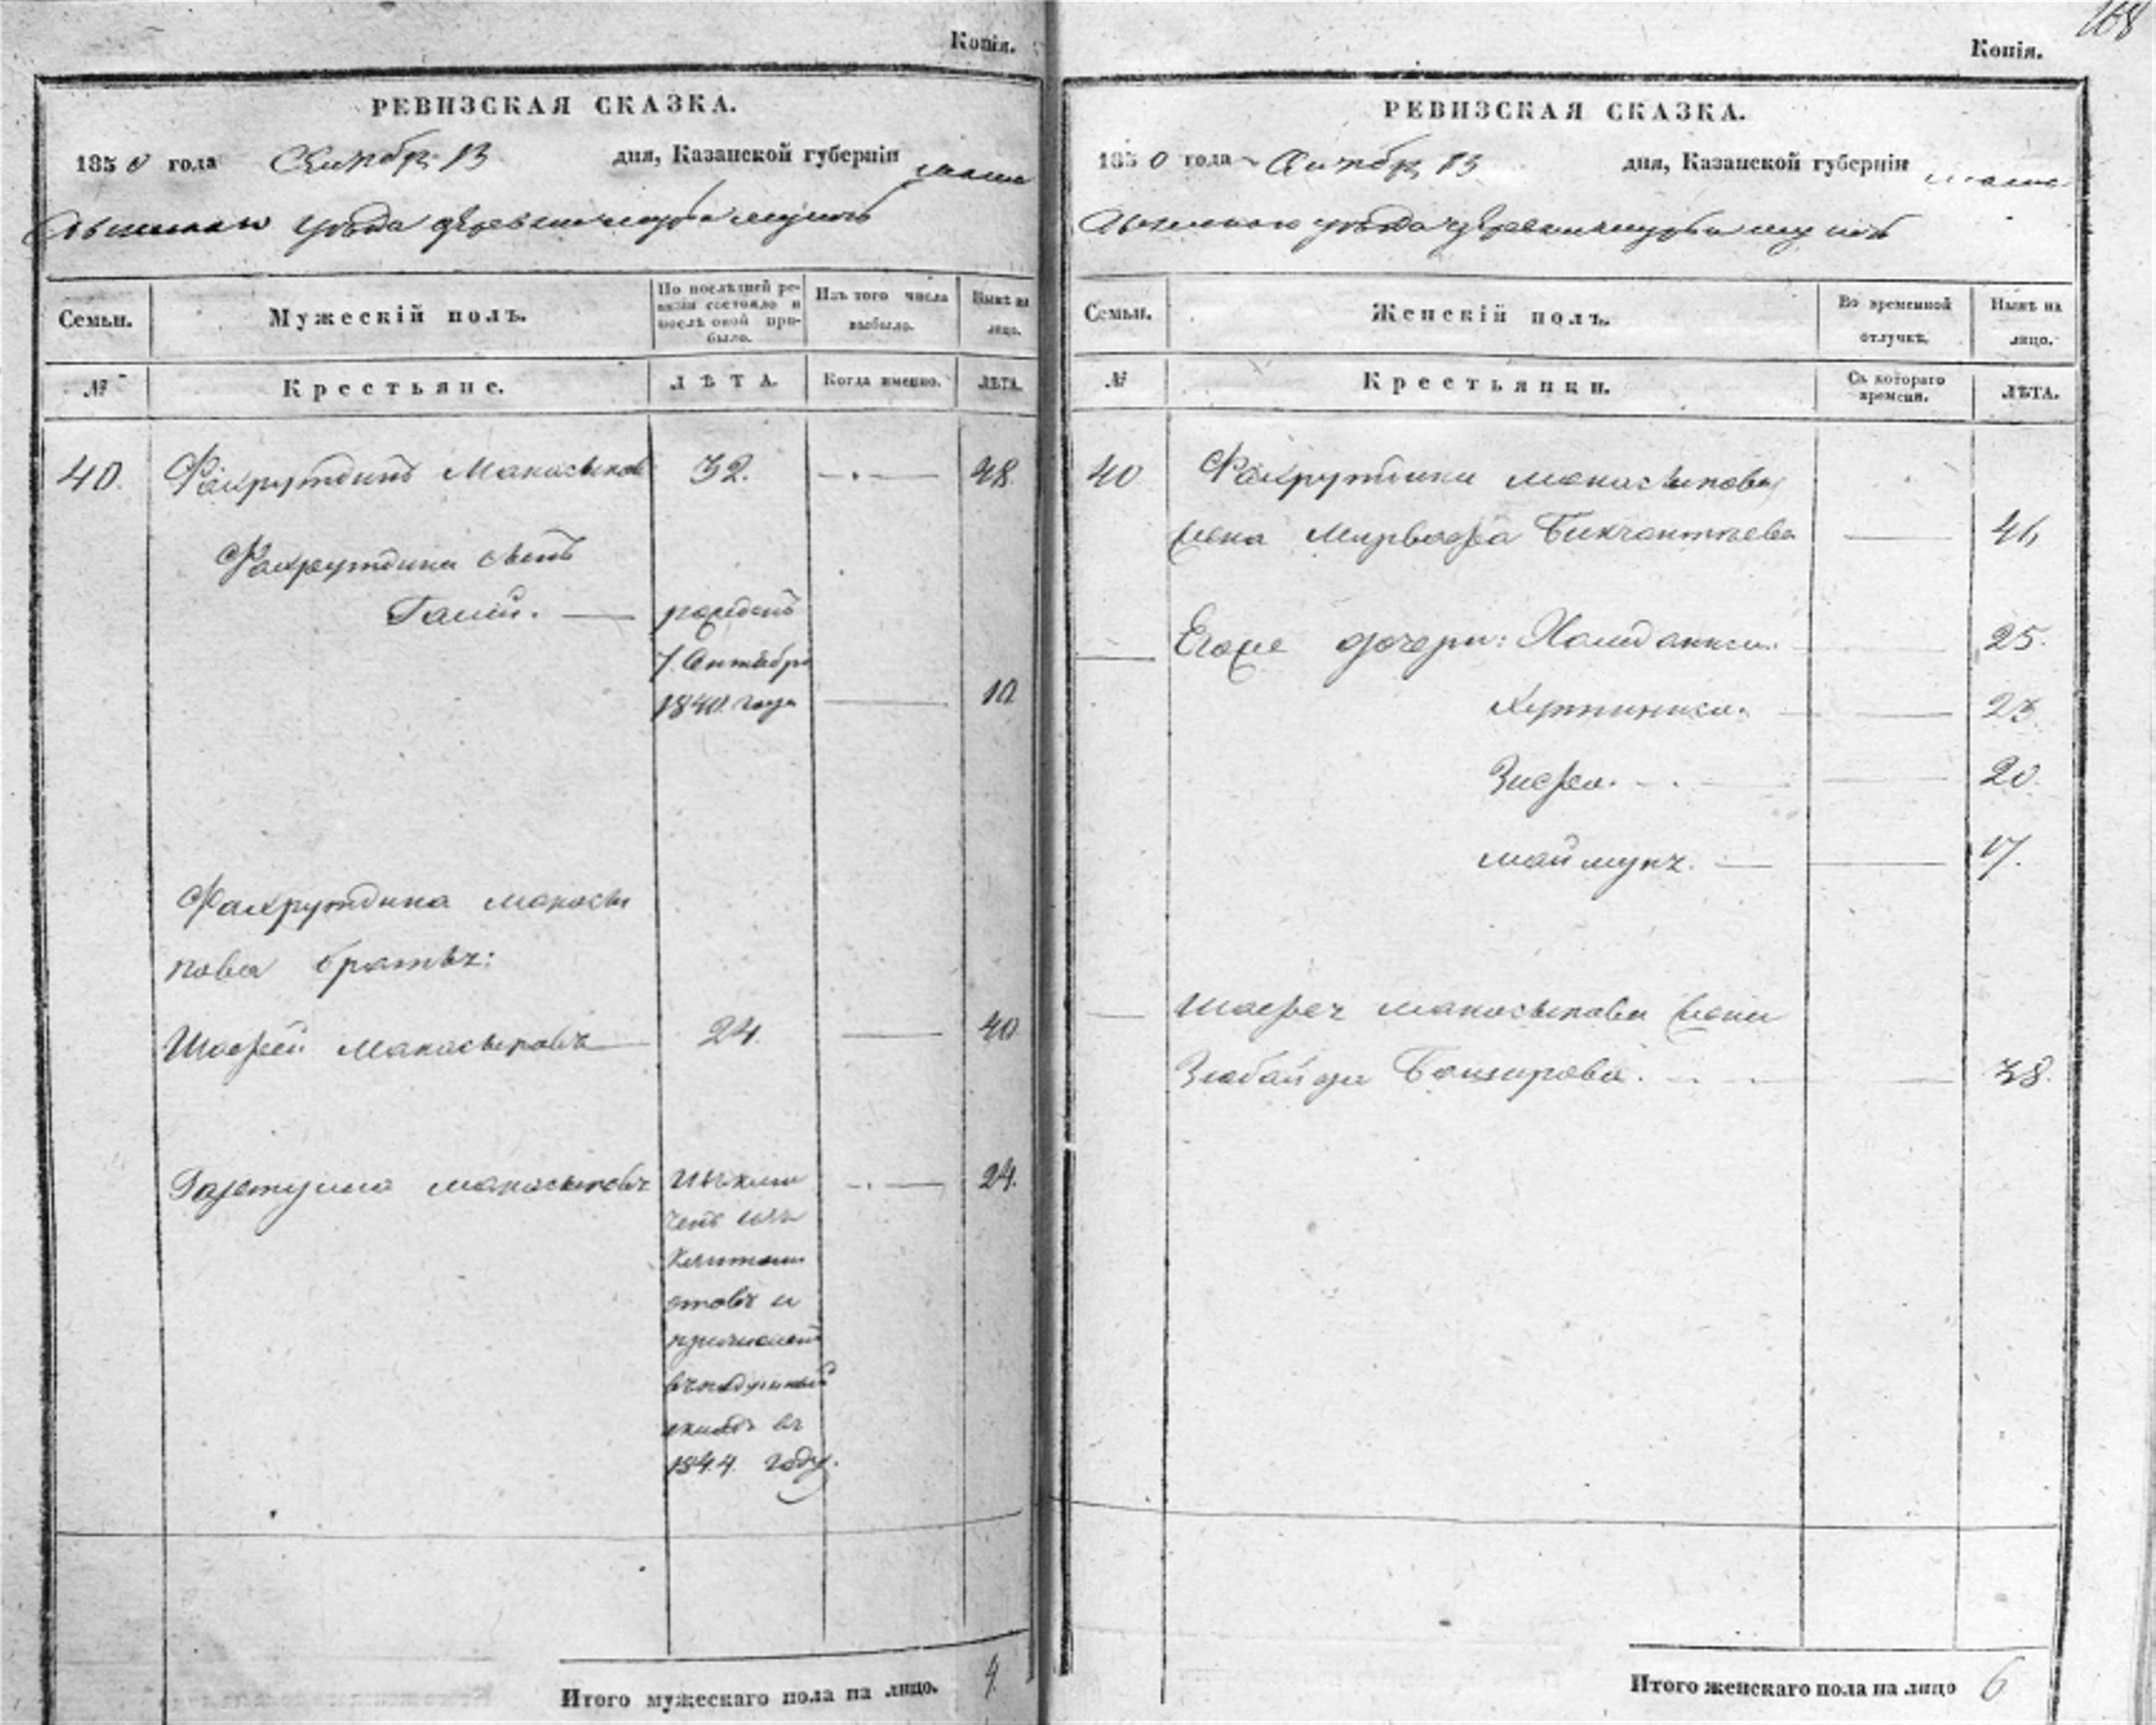 168
Копія.
РЕВИЗСКАЯ СКАЗКА.
1850 года Октября 13 дня, Казанской губерніи Мама
дышскаго уѣзда деревни
Семьи.
Мужескій полъ.
По послѣдней ревизіи состояло и послѣ оной прибыло.
Изъ того числа выбыло.
Нынѣ на лицо.
№
Крестьяне.
ЛѢТА.
Когда именно.
ЛѢТА.
40. Фахрутдинъ Манасыповъ 32. 48.
Фахрутдина сынъ
Галій. рожденъ
7. Октября
1840. года 10
Фахрутдина Манасы
пова братья:
Шафей Манасыповъ 24. 40
Манасыповъ исклю 24.
ченъ изъ
Кантони
стовъ и
причисленъ
въ подушный
окладъ въ
1844. году.
Итого мужескаго пола на лицо. 4.
Копія.
РЕВИЗСКАЯ СКАЗКА.
1850 года Октября 13 дня, Казанской губерніи Мама
дышскаго уѣзда деревни
Семьи.
Женскій полъ.
Во временной отлучкѣ.
Нынѣ на лицо.
№
Крестьянки.
Съ котораго времени.
ЛѢТА.
40 Фахрутдина Манасыпова
жена Бикчантаева 46
Егоже дочери: 25.
23
20.
Маймуна. 17.
Шафея Манасыпова жена
Зюбайда Башарова. 38.
Итого женскаго пола на лицо 6